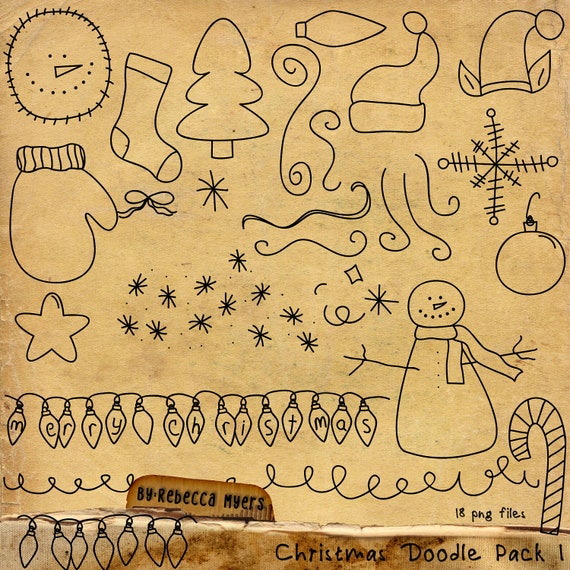 merry christmas
By: Rebecca Myers
18 png files
Christmas Doodle Pack 1